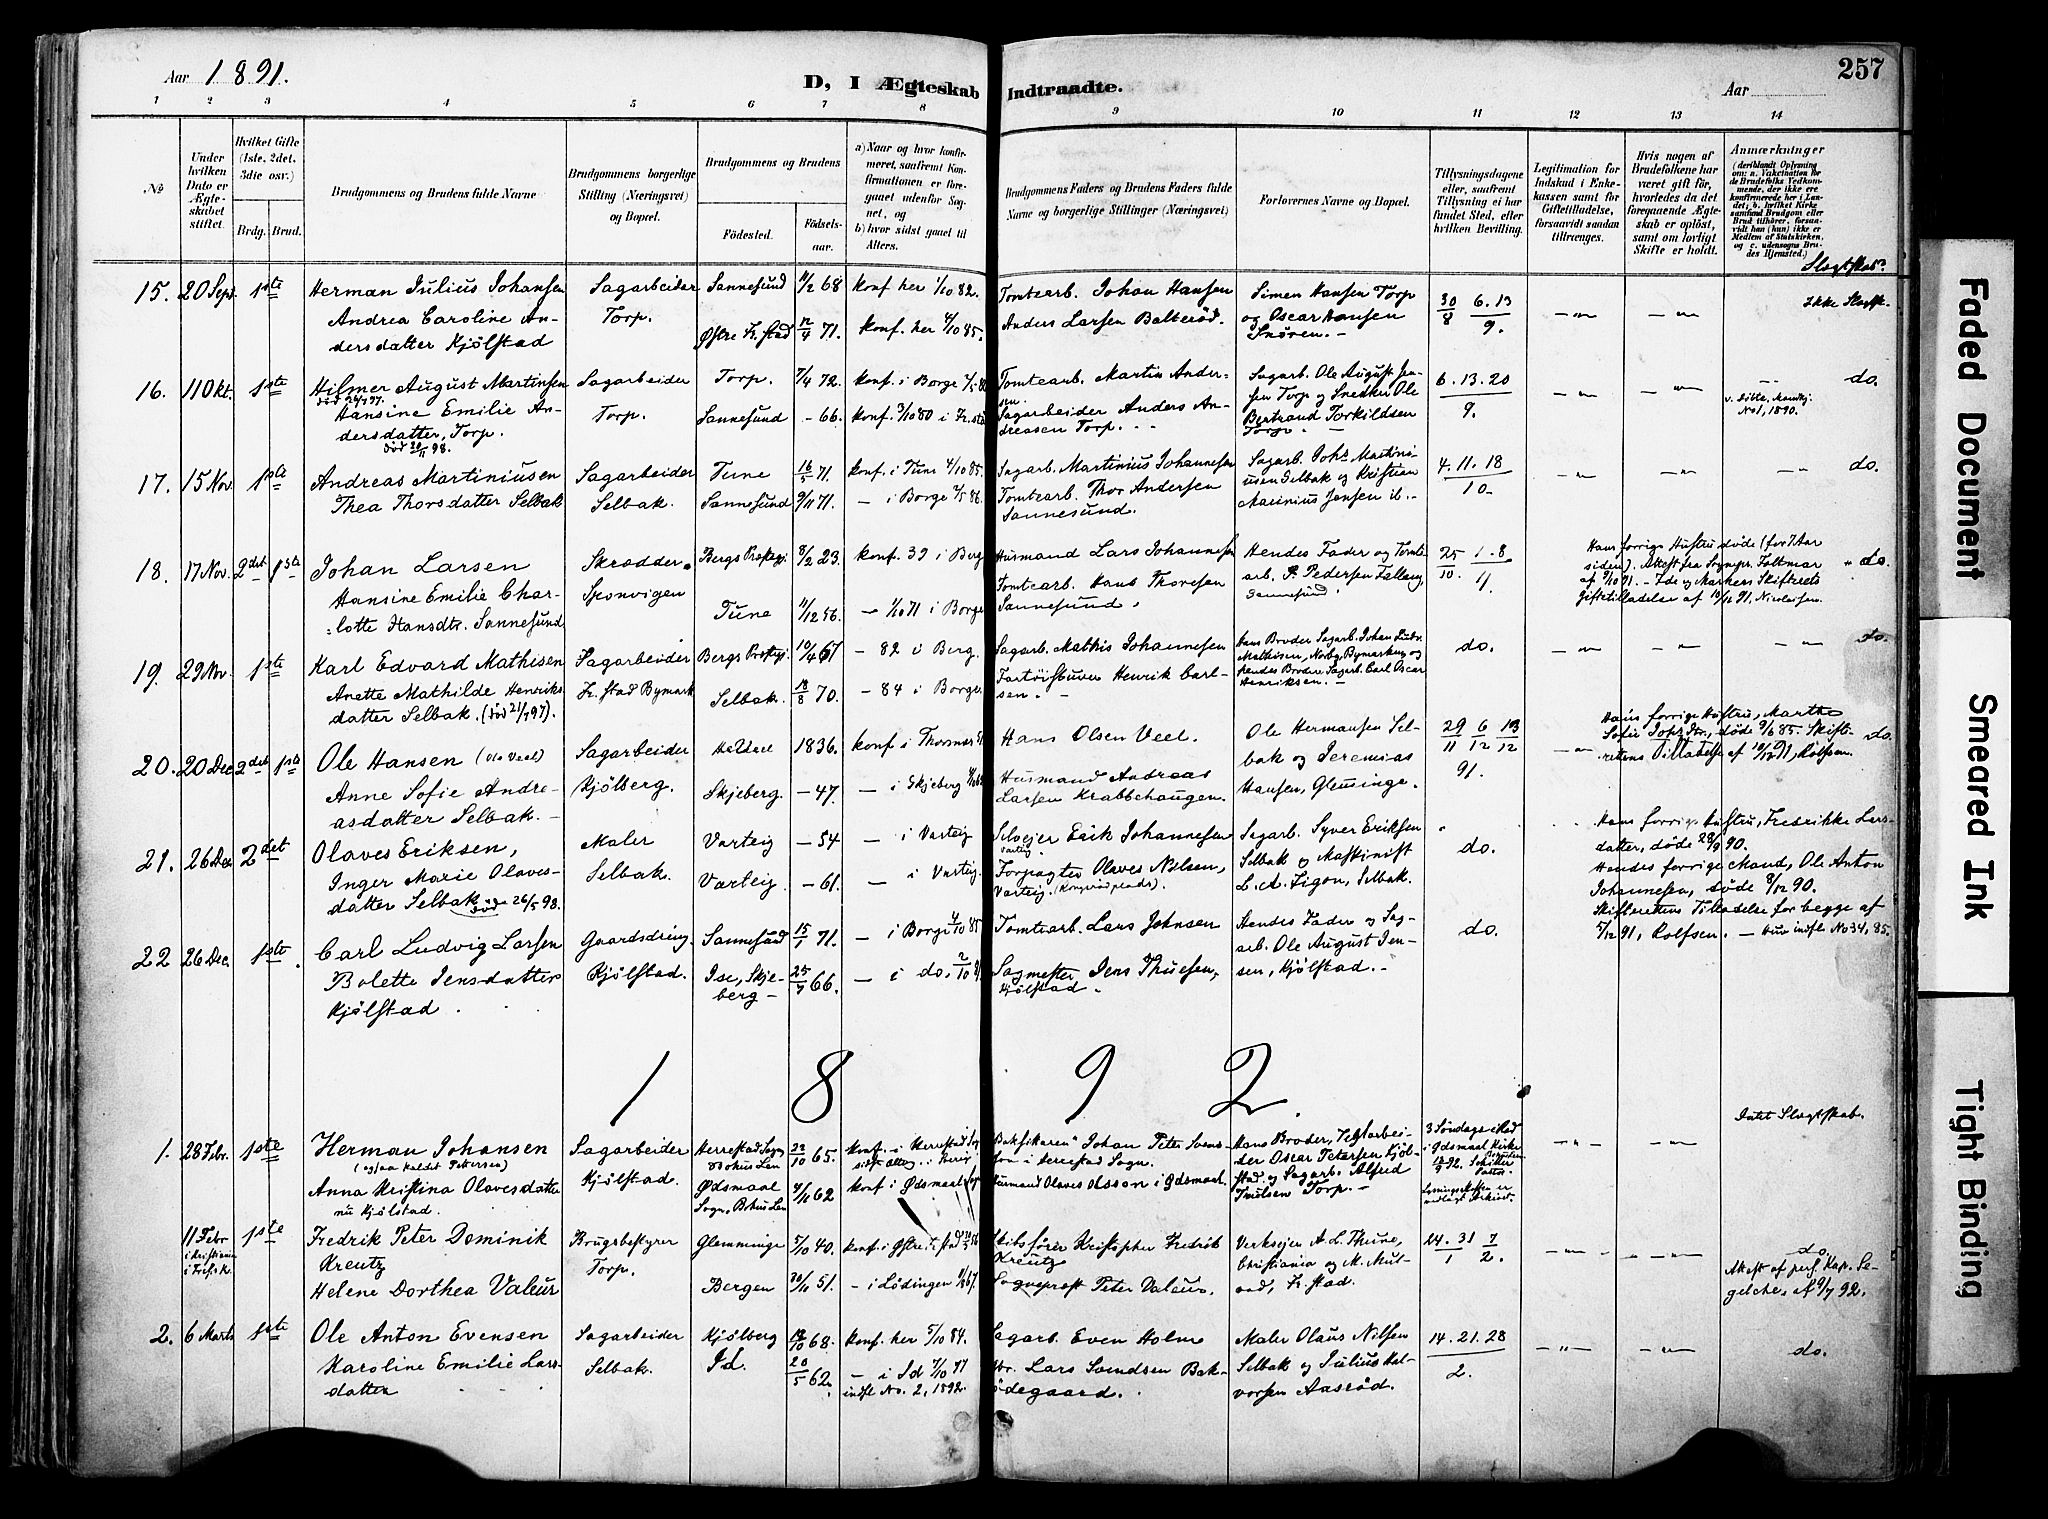 Aar 1891.
D, I Ægteskab Indtraadte.
Aar
257
1 2 3 4 5 6 7 8 9 10 11 12 13 14
No
Under hvilken Dato er Ægteskabet stiftet.
Hvilket Gifte (1ste, 2det, 3die osv.)
Brdg. Brud.
Brudgommens og Brudens fulde Navne
Brudgommens borgerlige Stilling (Næringsvei) og Bopæl.
Brudgommens og Brudens
Fødested. Fødselsaar.
a) Naar og hvor konfirmeret, saafremt Konfirmationen er foregaaet udenfor Sognet, og
b) hvor sidst gaaet til Alters.
Brudgommens Faders og Brudens Faders fulde Navne og borgerlige Stillinger (Næringsvei)
Forlovernes Navne og Bopæl.
Tillysningsdagene eller, saafremt Tillysning ei har fundet Sted, efter hvilken Bevilling.
Legitimation for Indskud i Enkekassen samt for Giftetilladelse, forsaavidt saadan tiltrænges.
Hvis nogen af Brudefolkene har været gift før, hvorledes da det foregaaende Ægteskab er opløst, samt om lovligt Skifte er holdt.
Anmærkninger (deriblandt Oplysning om: a. Vakcination for de Brudefolks Vedkommende, der ikke ere konfirmerede her i Landet; b. hvilket Kirkesamfund Brudgom eller Brud tilhører, forsaavidt han (hun) ikke er Medlem af Statskirken, og c. udensogns Brudes Hjemsted.)
Slægtskab?
15. 20 Sept. 1ste Herman Julius Johansen Sagarbeider Sannesund 11/2 68 konf. her 1/10 82. Tomtearb. Johan Hansen Simen Hansen Torp 30/8 6. 13/9. -"- -"- Ikke Slægtsk.
Andrea Caroline An- Torp. Østre Fr.stad 12/4 71. konf. her 4/10 85. Anders Larsen Balterød. og Oscar Hansen
dersdatter Kjölstad Snören.-
16. 11 Okt. 1ste Hilmer August Martinsen Sagarbeider Torp. 7/4 72. konf. i Borge Tomtearb. Martin Ander- Sagarb. Ole August Jen- 6. 13. 20 -"- -"- do.
død 26/7 97. sen. sen Torp og Snedker Ole 9.
Hansine Emilie An- Torp. Sannesund - 66. konf. 3/10 80 i Fr.stad Sagarbeider Anders An- Bertrand Torkildsen No 1, 1890.
dersdatter, Torp. dreasen Torp. Torp.
død 20/11 98.
17. 15 Nov. 1ste Andreas Martiniusen Sagarbeider Tune 16/5 71. konf. i Tune 4/10 85. Sagarb. Martinius Johannesen Sagarb. Johs Martini- 4. 11. 18 -"- -"- -"- do.
Thea Thorsdatter Selbak Selbak. Sannesund 9/11 71. - i Borge 2/5 86. Tomtearb. Thor Andersen usen Selbak og Kristian 10.
Sannesund. Marinius Jensen ib.-
18. 17 Nov. 2det 1ste Johan Larsen Skrædder Bergs Prestegj 8/2 23. konf. 39 i Berg Husmand Lars Johannesen Hendes Fader og Tomte- 25/10. 1. 8/11. Hans forrige Hustru døde (for 7 Aar do.
Hansine Emilie Char- Sponvigen Tomtearb. Hans Thoresen arb. P. Pedersen Falleng, siden). Attest fra Sognepr. Foltmar
lotte Hansdtr. Sannesund Tune 11/12 56. - 1/10 71 i Borge Sannesund. Sannesund. af 9/10 91. - Ide og Markers Skifterets
Giftetilladelse af 10/10 91, Nicolaisen.
19. 29 Nov. 1ste Karl Edvard Mathisen Sagarbeider Bergs Prestegj 10/4 67 - 82 i Berg. Sagarb. Mathis Johannesen Hans Broder Sagarb. Johan Ludv. do. -"- -"- -"- do.
Anette Mathilde Henriks Fr.stad Bymark Selbak. 18/8 70. - 84 i Borge. Fartöistuver Henrik Carl- Mathisen, Norbg. Bymarken og
datter Selbak. (død 21/7 97). sen. hendes Broder Sagarb. Carl Oscar
Henriksen.-
20. 20 Dec. 2det 1ste Ole Hansen (Ole Veel) Sagarbeider 1836. konf i Thorsnes Hans Olsen Veel. Ole Hermansen Sel- 29/11 6/12 13/12 -"- Hans forrige Hustru, Marthe do.
Anne Sofie Andre- Kjölberg. Skjeberg. - 47. - i Skjeberg Husmand Andreas bak og Jeremias 91. Sofie Johsdtr, døde 9/6 85. Skifte-
asdatter Selbak.- Larsen Krabbehaugen. Hansen, Glemminge. rettens Tilladelse af 10/12 91, Rolfsen.
21. 26 Dec 2det Olaves Eriksen, Maler Varteig - 54 - i Varteig Selveier Erik Johannesen Sagarb. Syver Eriksen do. Hans forrige Hustru, Fredrikke Lars-
Inger Marie Olaves- Selbak. Varteig. - 61. - i Varteig. Varteig. Selbak og Maskinist datter, døde 28/9 90.
datter Selbak død 26/5 98. Forpagter Olaves Nilsen, L. A. Ligon, Selbak. Hendes forrige Mand, Ole Anton
Varteig. Johannesen, døde 8/12 90.
Skifterettens Tilladelse for begge af
5/12 91, Rolfsen. - Brur indfl. No 34, 85.
22 26 Dec. 1ste Carl Ludvig Larsen Gaardsdreng Sannesund 15/1 71. - i Borge 4/10 85 Tomtearb. Lars Johnsen Hendes Fader og Sag- do.
Bolette Jensdatter Kjølstad. Ise, Skje- 25/7 66. - i do. 2/10 Sagmester Jens Thuesen, arb. Ole August Jen-
Kjølstad berg- Kjølstad. sen, Kjølstad.-
1892.
1. 28 Febr. 1ste Herman Johansen Sagarbeider Herrestad Sogn 22/10 65. konf. i Herrestad Sogn Johan Peter Svens- Hans Broder, Teglarbei- 3 Søndage i Rad -"- -"- Intet Slægtskab.
(ogsaa kaldet Petersen) Kjølstad. Bohus Len son i Herrestad Sogn. der Oscar Petersen Kjöl- i Ødsmaal Kirke
Anna Kristina Olavesdatter Ødsmaal 4/11 62 konf i Ødsmaal Husmand Olaves Olsson i Ødsmaal. stad og Sagarb. Alfred
nu Kjølstad. Sogn, Bohus Len Truelsen Torp.-
11 Febr 1ste Fredrik Peter Dominik Brugsbestyrer Glemminge 5/10 40. konf. i Østre Fr.stad Skibsfører Kristopher Fredrik Verkseier A. L. Thune, 24. 31/1 7/2. do.
i Kristiania Kreutz Torp. Kreutz Christiania og M. Mul-
i Tref. K. Helene Dorthea Valeur Bergen 30/11 51. - i Lödingen 67. Sogneprest Peter Valeur. vad, Fr.stad. Attest af pers. Kap. Se-
gelcke, af 9/7 92.
2. 6 Marts 1ste Ole Anton Evensen Sagarbeider Kjölberg 18/10 68. konf. her 5/10 84. Sagarb. Even Holm Maler Olaus Nilsen 14. 21. 28 -"- -"- do.
Karoline Emilie Lars- Selbak. Id. 20/5 62. - i Id 7/10 77 Lars Svendsen Bak- Selbak og Julius Hal- 2.
datter indfl No. 2, 1892. ødegaard. vorsen Aasröd.
Faded Document
Smeared Ink
Tight Binding